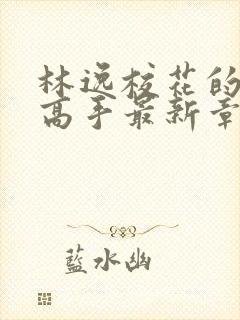 林逸校花的
高手最新章
蓝水幽